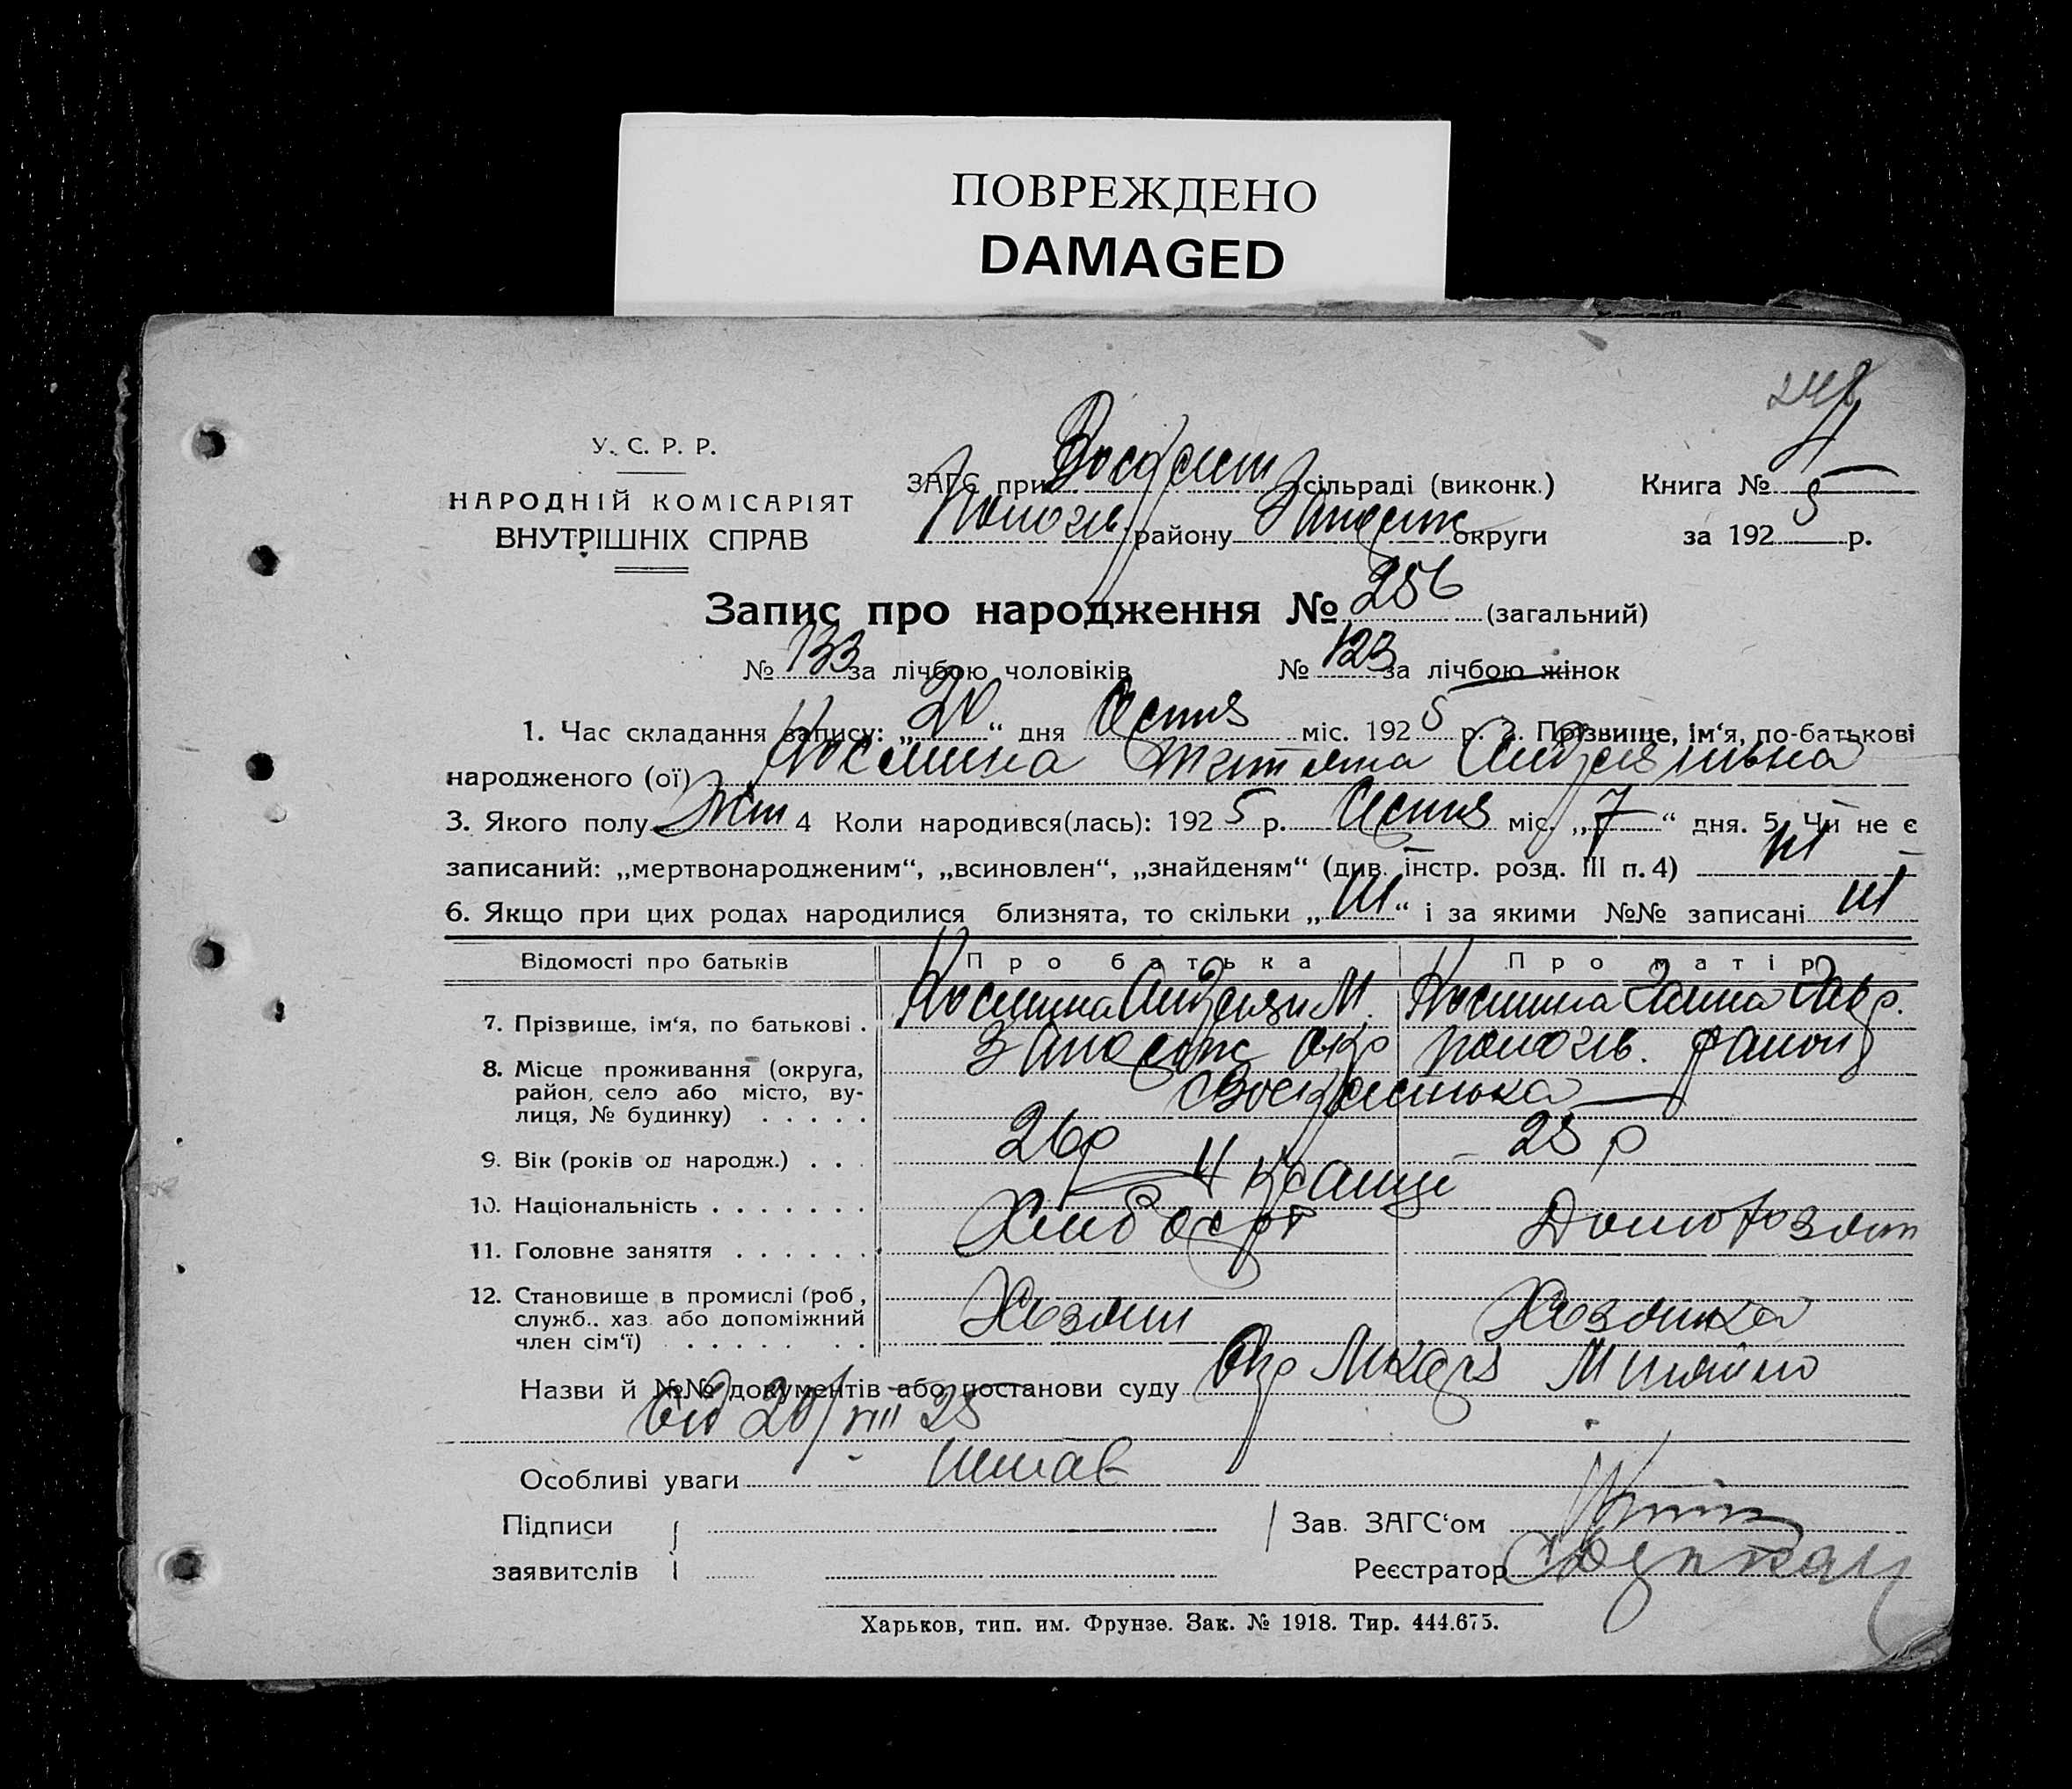 ПОВРЕЖДЕНО
DAMAGED
248
У. С. Р. Р.
НАРОДНІЙ КОМІСАРІЯТ
ВНУТРІШНІХ СПРАВ
ЗАГС при Воскресен сільраді (виконк.) Книга №
Пологів. району Запоріж округи за 192 5 р.
Запис про народження № 256 (загальний)
№ 133 за лічбою чоловіків № 123 за лічбою жінок
1. Час складання запису: „ 20 “ дня Серпня міс. 192 5 р. 2. Прізвище, ім‘я, по-батькові
народженого (ої) Косміна Татьяна Андріянівна
3. Якого полу жін 4 Коли народився(лась): 192 5 р. Серпня міс. „ 7 “ дня. 5. Чи не є
записаний: „мертвонародженим“, „всиновлен“, „знайденям“ (див. інстр. розд. III п. 4) ні
6. Якщо при цих родах народилися близнята, то скільки „ ні “ і за якими №№ записані ні
Відомості про батьків Про батька Про матір
7. Прізвище, ім‘я, по батькові . Косміна Андріян М. Косміна Ганна Гавр.
8. Місце проживання (округа, Запоріж окр пологів. району
район, село або місто, ву- Воскресенька
лиця, № будинку) . . . . .
9. Вік (років од народж.) . . . 26 р 25 р
10. Національність . . . . . . . Українці
11. Головне заняття . . . . . . Хлібороб Домохозяй
12. Становище в промислі (роб., Хозяін Хозяйка
служб.. хаз. або допоміжний
член сім‘ї) . . . . . . .
Назви й №№ документів або постанови суду Лікаря
від 20/VIII 25
Особливі уваги немає
Підписи Зав. ЗАГС‘ом
заявителів Реєстратор
Харьков, тип. им. Фрунзе. Зак. № 1918. Тир. 444.675.